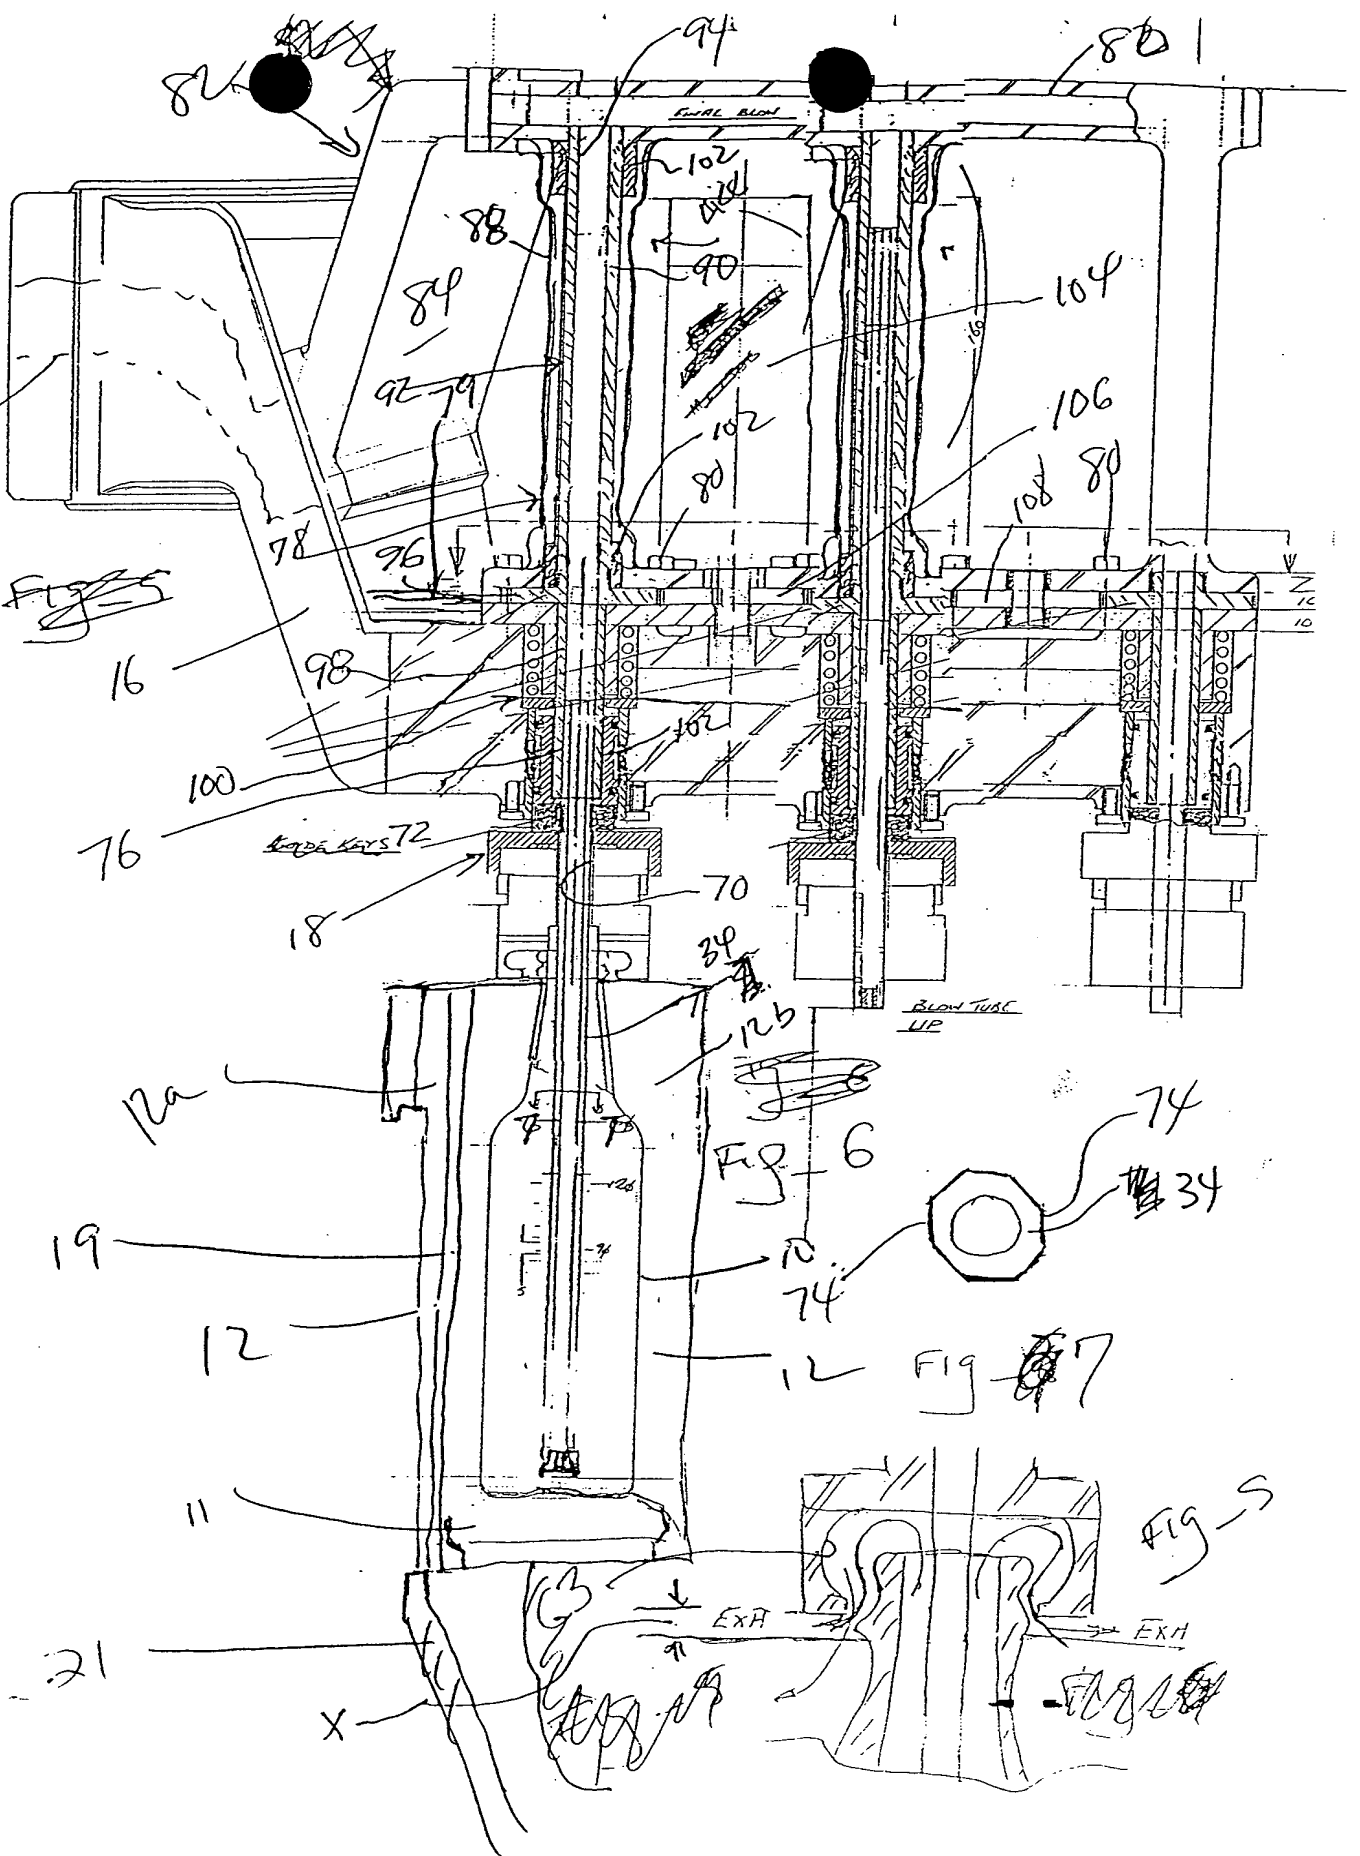 94
82
FINAL BLOW
102
88
90
84
104
160
92
79
102
106
80
108
80
78
96
16
98
102
100
76
72
18
70
34
12b
BLOW TUBE
UP
12a
Fig 6
74
34
19
10
74
12
12
Fig 7
11
Fig 5
63
EXH
EXH
21
X